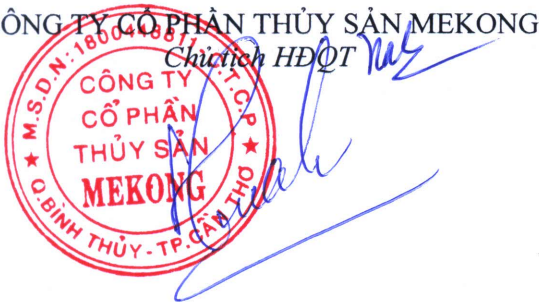 ÔNG TY CỔ PHẦN THỦY SẢN MEKONG
Chủ tịch HĐQT
CÔNG TY
CỔ PHẦN
THỦY SẢN
MEKONG
Q.BÌNH THỦY - TP.CẦN THƠ